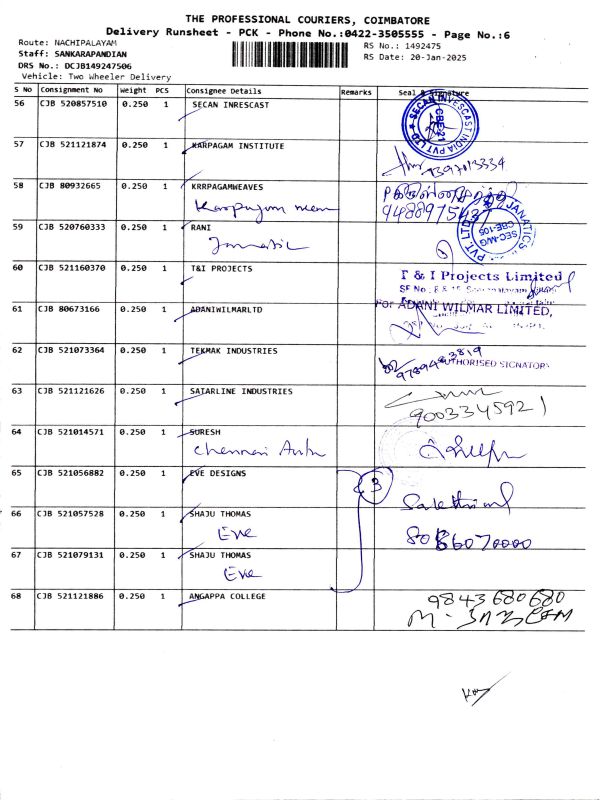 THE PROFESSIONAL COURIERS, COIMBATORE
Delivery Runsheet - PCK - Phone No.:0422-3505555 - Page No.:6
Route: NACHIPALAYAM
RS No.: 1492475
Staff: SANKARAPANDIAN
RS Date: 20-Jan-2025
DRS No.: DCJB149247506
Vehicle: Two Wheeler Delivery
S No Consignment No Weight PCS Consignee Details Remarks Seal & Signature
56 CJB 520857510 0.250 1 SECAN INRESCAST
SECAN INVESCAST INDIA PVT LTD ★ CBE-21
57 CJB 521121874 0.250 1 KARPAGAM INSTITUTE
9397013334
58 CJB 80932665 0.250 1 KRRPAGAMWEAVES
9488975437
59 CJB 520760333 0.250 1 RANI
JANATICS PVT. LTD
CBE-105
60 CJB 521160370 0.250 1 T&I PROJECTS
T & I Projects Limited
61 CJB 80673166 0.250 1 ADANIWILMARLTD
For ADANI WILMAR LIMITED,
62 CJB 521073364 0.250 1 TEKMAK INDUSTRIES
9789483819
AUTHORISED SIGNATORY
63 CJB 521121626 0.250 1 SATARLINE INDUSTRIES
9003345921
64 CJB 521014571 0.250 1 SURESH
Chennai Auto
65 CJB 521056882 0.250 1 EVE DESIGNS
3
66 CJB 521057528 0.250 1 SHAJU THOMAS
Eve
8086070000
67 CJB 521079131 0.250 1 SHAJU THOMAS
Eve
68 CJB 521121886 0.250 1 ANGAPPA COLLEGE
9843680680